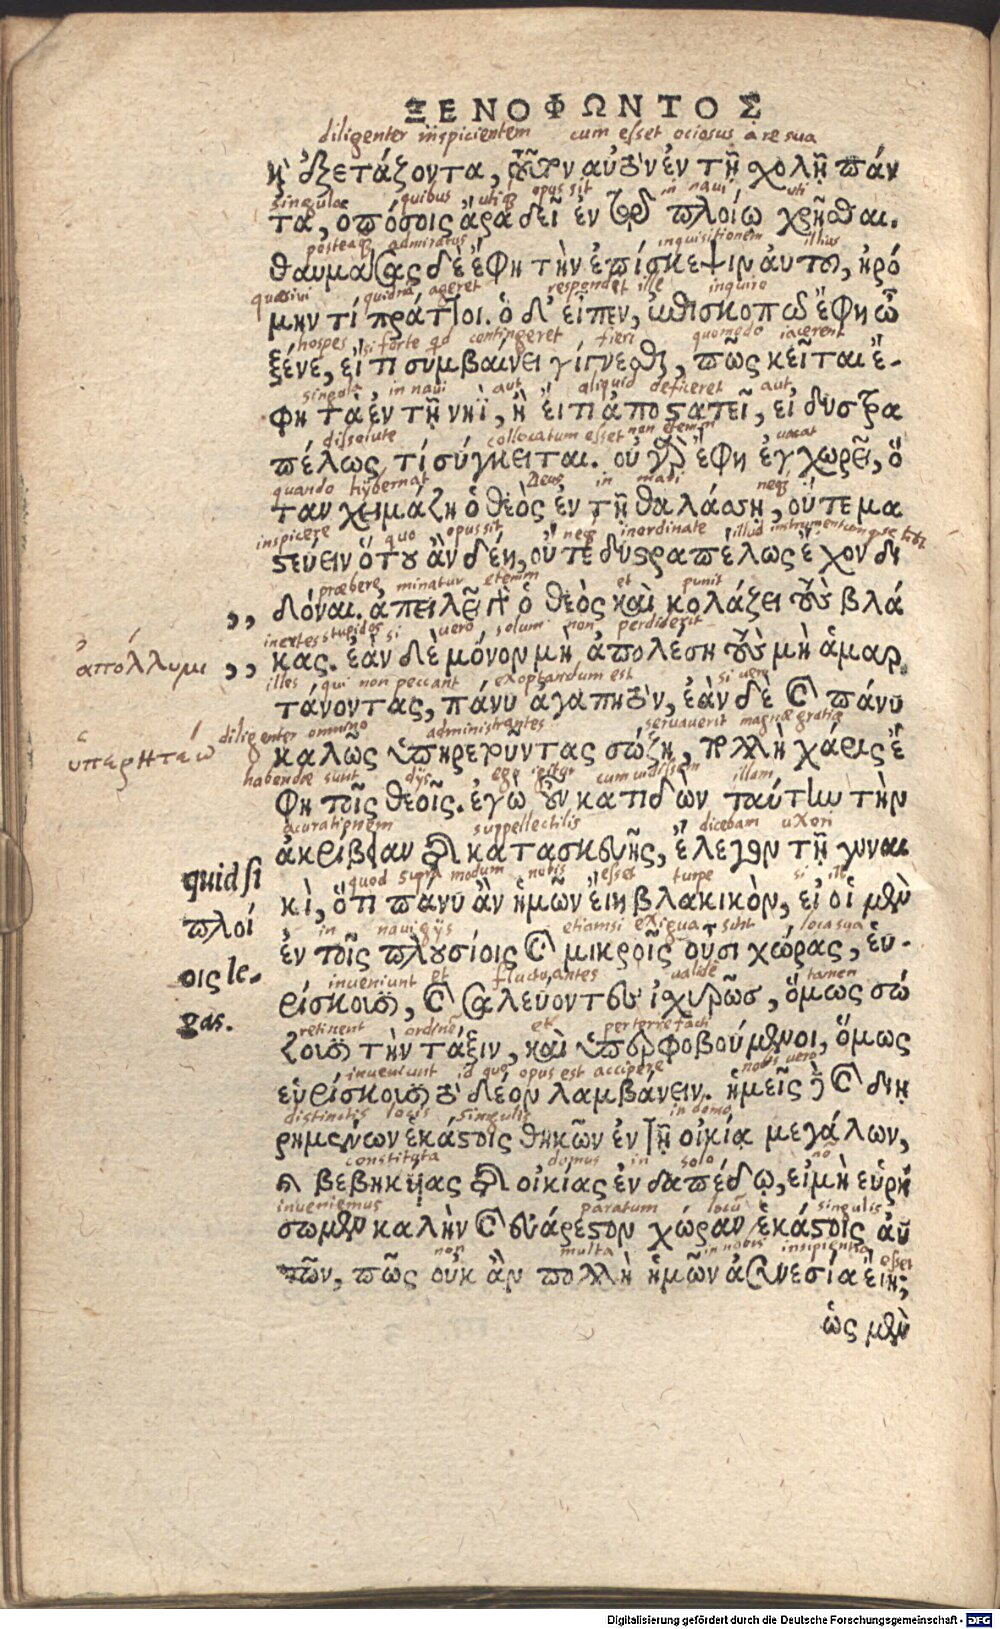 ΞΕΝΟΦΩΝΤΟΣ
diligenter inspicientem cum esset ociosus a re sua
κỳ ἐξετάζοντα, τοῦτον αὐτὸν ἐν τῇ χολῇ πάν
singula quibus utiq̃ opus sit in naui uti
τα, ὁπόσοις ἄρα δεῖ ἐν τῷ πλοίῳ χρῆσθαι.
posteaq̃ admiratus inquisitionem illius
θαυμάσας δὲ ἔφη τὴν ἐπίσκεψιν αὐτοῦ, ἠρό
quæsiui quidnã ageret respondet ille inquiro
μην τί πράττοι. ὁ δ' εἶπεν, ἐπισκοπῶ ἔφη ὦ
hospes si forte qd contingeret fieri quomodo iacerent
ξένε, εἴ τι συμβαίνει γίγνεσθαι, πῶς κεῖται ἔ-
singula in naui aut aliquid deficeret aut
φη τὰ ἐν τῇ νηῒ, ἢ εἴ τι ἀποστατεῖ, εἰ δυστρα
dissolute collocatum esset non etenim uacat
πέλως τί σύγκειται. οὐ γὰρ ἔφη ἐγχωρεῖ, ὅ
quando hybernat Deus in mari neq̃
ταν χειμάζῃ ὁ θεὸς ἐν τῇ θαλάσσῃ, οὔτε μα
inspicere quo opus sit neq̃ inordinate illud instrumentum
στεύειν ὅτου ἂν δέῃ, οὔτε δυστραπέλως ἔχον δι
præbere minatur etenim et punit
,, δόναι. ἀπειλεῖ γὰρ ὁ θεὸς καὶ κολάζει τοὺς βλά
inertes stupidos si uero solum non perdiderit
ἀπόλλυμι
,, κας. ἐὰν δὲ μόνον μὴ ἀπολέσῃ τοὺς μὴ ἁμαρ
illos qui non peccant exoptandum est si uero
τάνοντας, πάνυ ἀγαπητὸν, ἐὰν δὲ καὶ πάνυ
diligenter omnino administrantes seruauerit magnæ gratiæ
ὑπερητέω
καλῶς ὑπηρετοῦντας σώζῃ, πολλὴ χάρις ἔ
habendæ sunt dijs ego igitur cum uidissem illam
φη τοῖς θεοῖς. ἐγὼ οὖν κατιδὼν ταύτην τὴν
acurationem suppellectilis dicebam uxori
ἀκρίβειαν τῆς κατασκευῆς, ἔλεγον τῇ γυναι
quod supra modum nobis esset turpe si ille
quid si
κὶ, ὅτι πάνυ ἂν ἡμῶν εἴη βλακικὸν, εἰ οἱ μὲν
in nauigijs etiamsi exigua sint loca sua
πλοί
ἐν τοῖς πλουσίοις καὶ μικροῖς οὖσι χώρας, εὑ-
inueniunt et fluctuantes ualde tamen
οις le-
ρίσκουσι, καὶ σαλεύοντες ἰχυρῶσ, ὅμως σώ
retinent ordinẽ et perterrefacti
gas.
ζουσι τὴν τάξιν, καὶ ὑπερφοβούμενοι, ὅμως
inueniunt id quo opus est accipere nobis uero
εὑρίσκουσι τὸ δέον λαμβάνειν. ἡμεῖς δὲ καὶ διῃ
distinctis locis singulis in domo
ρημένων ἑκάστοις θηκῶν ἐν τῇ οἰκίᾳ μεγάλων,
constituta domus in solo nõ
καὶ βεβηκυίας τῆς οἰκίας ἐν δαπέδῳ, εἰ μὴ εὑρή
inueniemus paratum locũ singulis
σωμεν καλὴν καὶ εὐάρεστον χώραν ἑκάστοις αὐ
non multa in nobis insipientia esset
τῶν, πῶς οὐκ ἂν πολλὴ ἡμῶν ἀσυνεσία εἴη;
ὡς μὲν
Digitalisierung gefördert durch die Deutsche Forschungsgemeinschaft - DFG